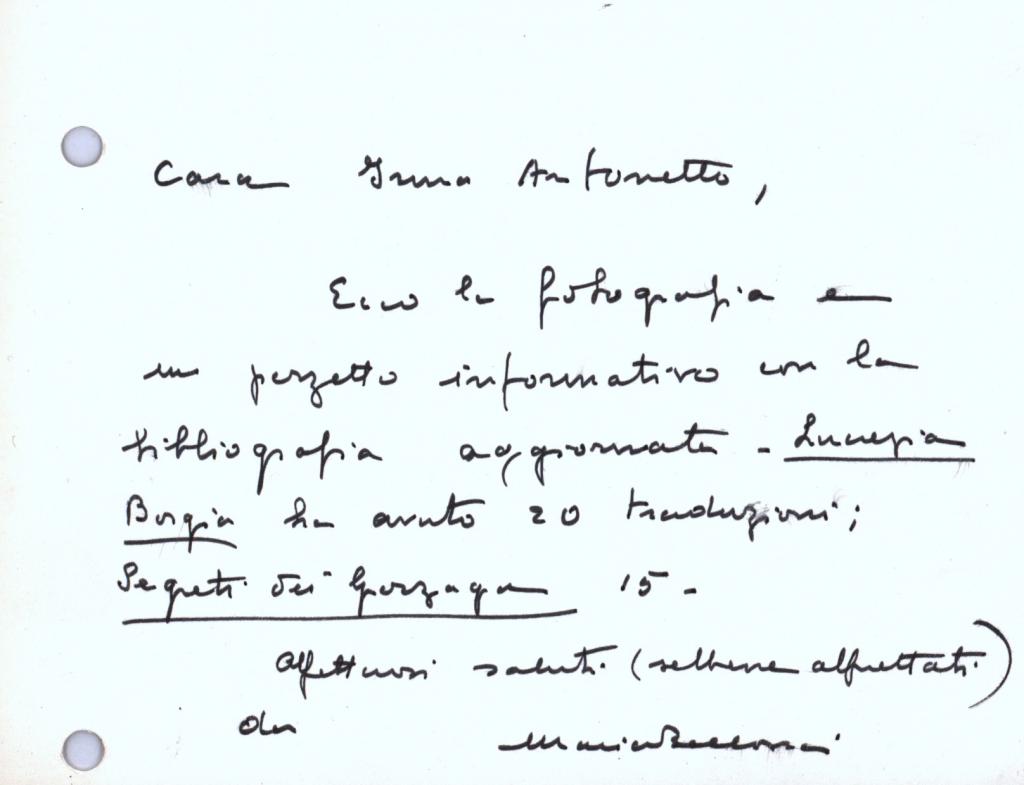 Cara Irma Antonetto,
Ecco la fotografia e
un pezzetto informativo con la
bibliografia aggiornata - Lucrezia
Borgia ha avuto 20 traduzioni;
Segreti dei Gonzaga 15 -
Affettuosi saluti (sebbene affrettati)
da
Maria Bellonci